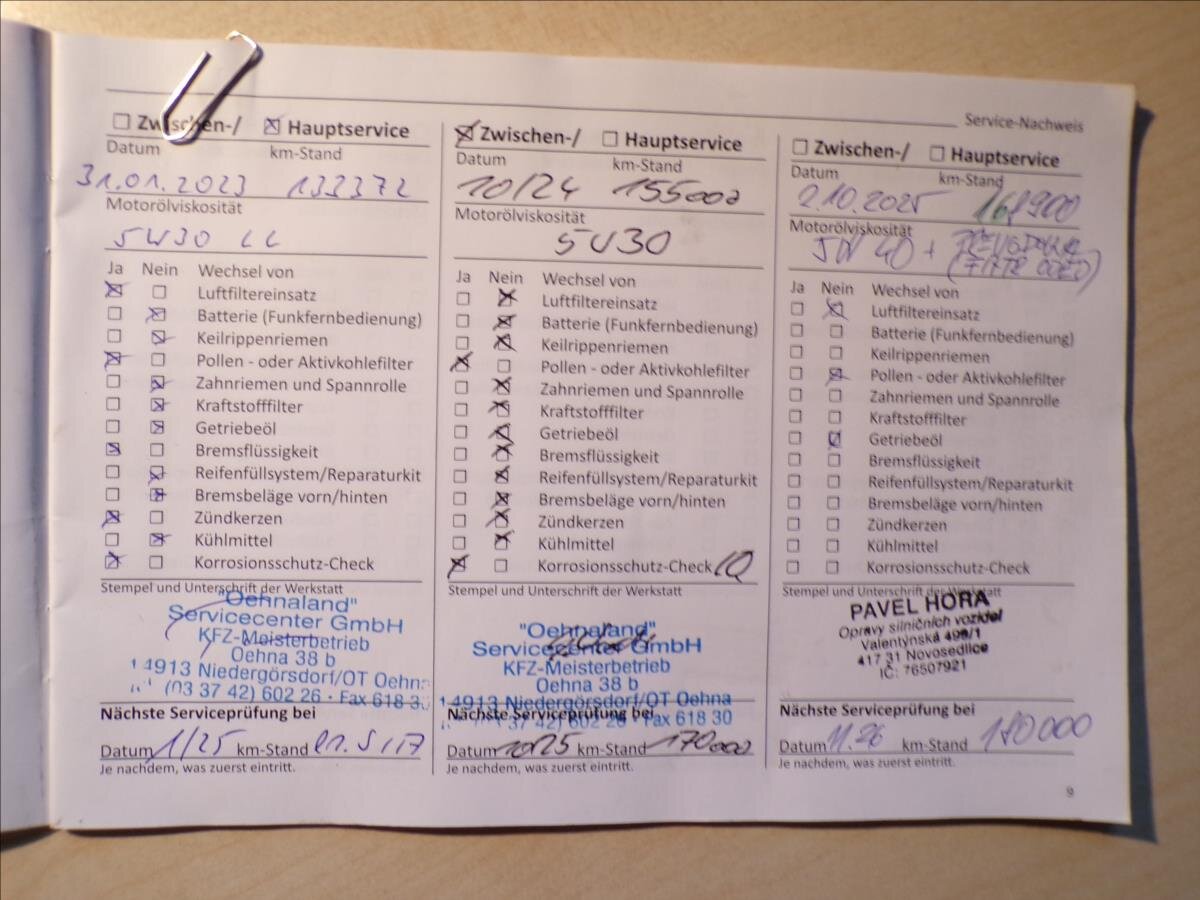 Service-Nachweis
☐ Zwischen-/ ☒ Hauptservice
Datum km-Stand
31.01.2023 133372
Motorölviskosität
5W30 LL
Ja Nein Wechsel von
☒ ☐ Luftfiltereinsatz
☐ ☒ Batterie (Funkfernbedienung)
☐ ☒ Keilrippenriemen
☒ ☐ Pollen - oder Aktivkohlefilter
☐ ☒ Zahnriemen und Spannrolle
☐ ☒ Kraftstofffilter
☐ ☒ Getriebeöl
☒ ☐ Bremsflüssigkeit
☐ ☒ Reifenfüllsystem/Reparaturkit
☐ ☒ Bremsbeläge vorn/hinten
☒ ☐ Zündkerzen
☐ ☒ Kühlmittel
☒ ☐ Korrosionsschutz-Check
Stempel und Unterschrift der Werkstatt
"Oehnaland"
Servicecenter GmbH
KFZ-Meisterbetrieb
Oehna 38 b
14913 Niedergörsdorf/OT Oehna
(03 37 42) 602 26 · Fax 618 30
Nächste Serviceprüfung bei
Datum 1/25 km-Stand
Je nachdem, was zuerst eintritt.
☒ Zwischen-/ ☐ Hauptservice
Datum km-Stand
10/24 155000
Motorölviskosität
5W30
Ja Nein Wechsel von
☐ ☒ Luftfiltereinsatz
☐ ☒ Batterie (Funkfernbedienung)
☐ ☒ Keilrippenriemen
☒ ☐ Pollen - oder Aktivkohlefilter
☐ ☒ Zahnriemen und Spannrolle
☐ ☒ Kraftstofffilter
☐ ☒ Getriebeöl
☐ ☒ Bremsflüssigkeit
☐ ☒ Reifenfüllsystem/Reparaturkit
☐ ☒ Bremsbeläge vorn/hinten
☐ ☒ Zündkerzen
☐ ☒ Kühlmittel
☒ ☐ Korrosionsschutz-Check
Stempel und Unterschrift der Werkstatt
"Oehnaland"
Servicecenter GmbH
KFZ-Meisterbetrieb
Oehna 38 b
14913 Niedergörsdorf/OT Oehna
37 42) 602 26 · Fax 618 30
Nächste Serviceprüfung bei
Datum 10/25 km-Stand 170000
Je nachdem, was zuerst eintritt.
☐ Zwischen-/ ☐ Hauptservice
Datum km-Stand
2.10.2025
Motorölviskosität
5W 40 +
Ja Nein Wechsel von
☐ ☒ Luftfiltereinsatz
☐ ☐ Batterie (Funkfernbedienung)
☐ ☐ Keilrippenriemen
☐ ☒ Pollen - oder Aktivkohlefilter
☐ ☐ Zahnriemen und Spannrolle
☐ ☐ Kraftstofffilter
☐ ☒ Getriebeöl
☐ ☐ Bremsflüssigkeit
☐ ☐ Reifenfüllsystem/Reparaturkit
☐ ☐ Bremsbeläge vorn/hinten
☐ ☐ Zündkerzen
☐ ☐ Kühlmittel
☐ ☐ Korrosionsschutz-Check
Stempel und Unterschrift der Werkstatt
PAVEL HORA
Opravy silničních vozidel
Valentýnská 499/1
417 31 Novosedlice
IČ: 76507921
Nächste Serviceprüfung bei
Datum 11.26 km-Stand 180000
Je nachdem, was zuerst eintritt.
9